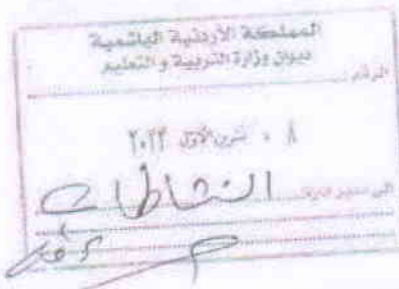 المملكة الأردنية الهاشمية
ديوان وزارة التربية والتعليم
الرقم
٠٨ تشرين الأول ٢٠٢٣
الى مدير ادارة النشاطات